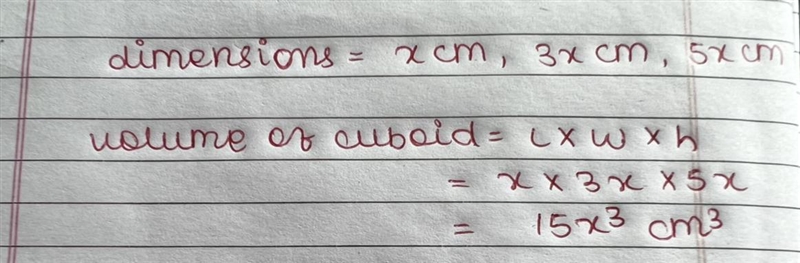 dimensions = x cm, 3x cm, 5x cm
volume of cuboid = l × w × h
= x × 3x × 5x
= 15x³ cm³